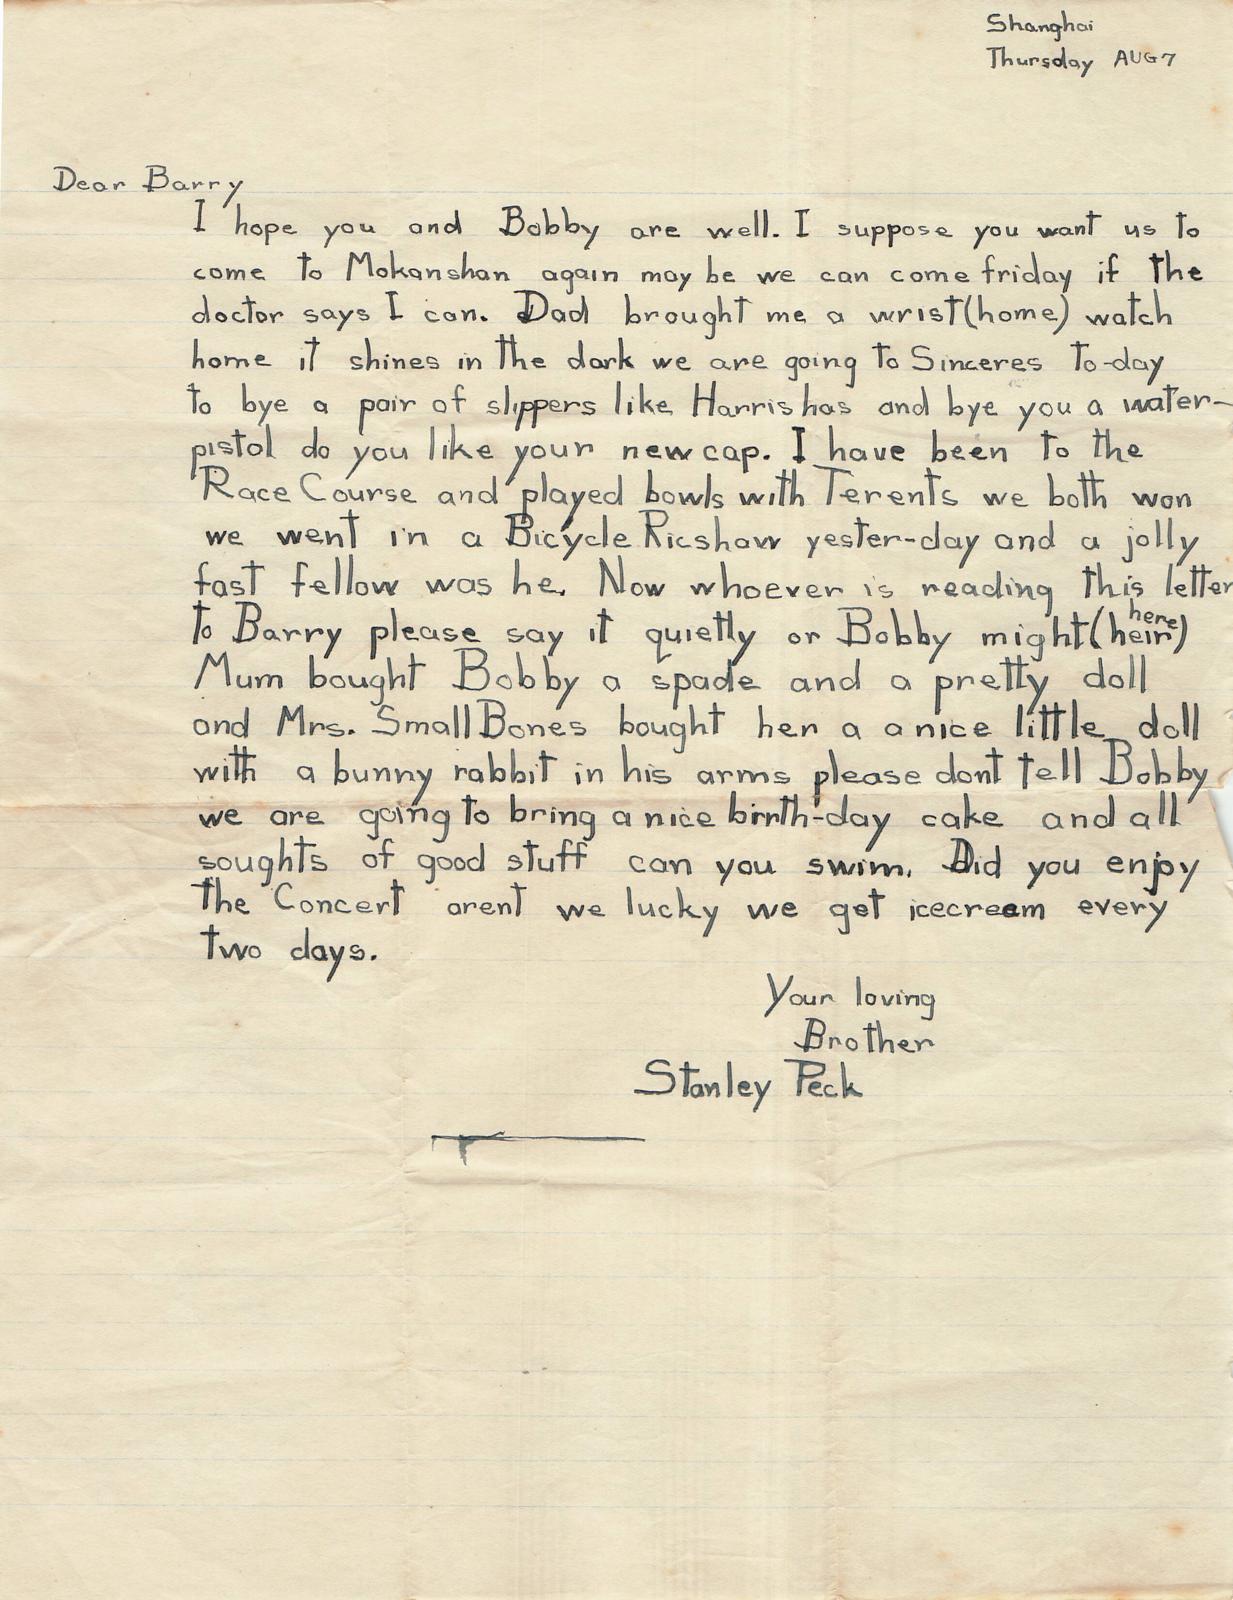 Shanghai
Thursday AUG 7
Dear Barry
I hope you and Bobby are well. I suppose you want us to
come to Mokanshan again may be we can come friday if the
doctor says I can. Dad brought me a wrist (home) watch
home it shines in the dark we are going to Sinceres to-day
to bye a pair of slippers like Harris has and bye you a water-
pistol do you like your new cap. I have been to the
Race Course and played bowls with Terents we both won
we went in a Bicycle Ricshaw yester-day and a jolly
fast fellow was he. Now whoever is reading this letter
to Barry please say it quietly or Bobby might (heir) here
Mum bought Bobby a spade and a pretty doll
and Mrs. Small Bones bought her a a nice little doll
with a bunny rabbit in his arms please dont tell Bobby
we are going to bring a nice birth-day cake and all
soughts of good stuff can you swim. Did you enjoy
the Concert arent we lucky we get icecream every
two days.
Your loving
Brother
Stanley Peck